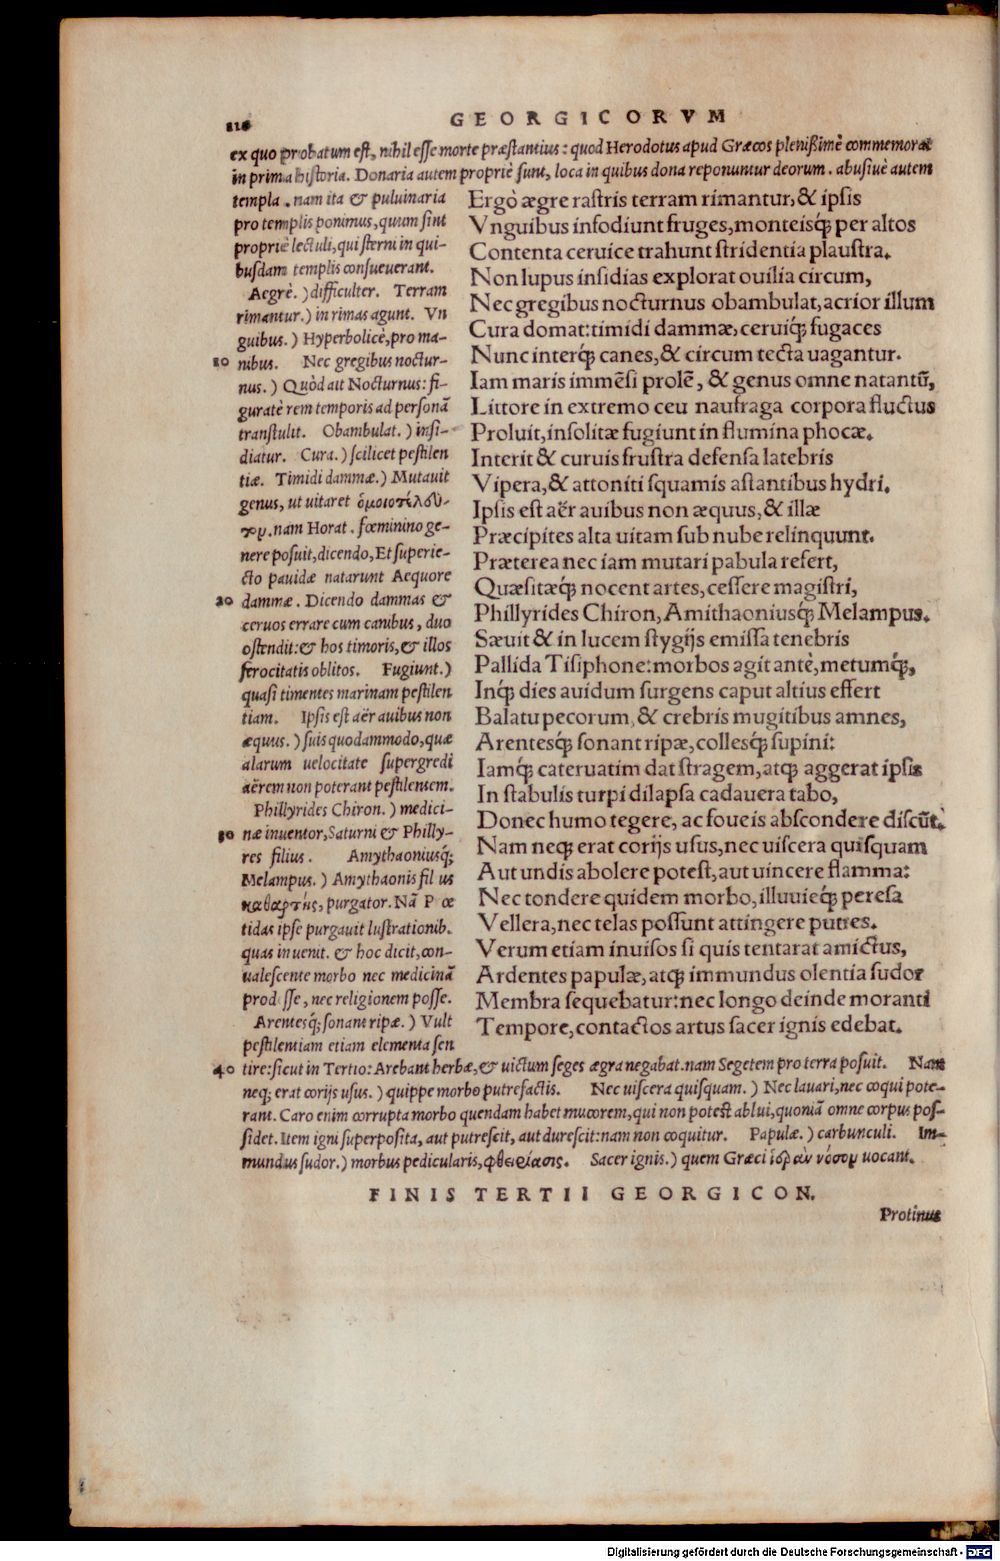 GEORGICORVM
ex quo probatum est, nihil esse morte præstantius: quod Herodotus apud Græcos plenißimè commemorat
in prima historia. Donaria autem propriè sunt, loca in quibus dona reponuntur deorum. abusiuè autem
templa. nam ita & puluinaria
pro templis ponimus, quum sint
propriè lectuli, qui sterni in qui-
busdam templis consueuerant.
Aegrè.) difficulter. Terram
rimantur.) in rimas agunt. Vn
guibus.) Hyperbolicè, pro ma-
10 nibus. Nec gregibus noctur-
nus.) Quòd ait Nocturnus: fi-
guratè rem temporis ad personã
transtulit. Obambulat.) insi-
diatur. Cura.) scilicet pestilen
tiæ. Timidi dammæ.) Mutauit
genus, ut uitaret ὁμοιοτέλευ-
τον. nam Horat. fœminino ge-
nere posuit, dicendo, Et superie-
cto pauidæ natarunt Aequore
20 dammæ. Dicendo dammas &
ceruos errare cum canibus, duo
ostendit: & hos timoris, & illos
ferocitatis oblitos. Fugiunt.)
quasi timentes marinam pestilen
tiam. Ipsis est aër auibus non
æquus.) suis quodammodo, quæ
alarum uelocitate supergredi
aërem non poterant pestilentem.
Phillyrides Chiron.) medici-
30 næ inuentor, Saturni & Philly-
res filius. Amythaoniusq́;
Melampus.) Amythaonis filius
καθαρτὴς, purgator. Nã Prœ
tidas ipse purgauit lustrationib.
quas inuenit. & hoc dicit, con-
ualescente morbo nec medicinã
prodesse, nec religionem posse.
Arentesq́; sonant ripæ.) Vult
pestilentiam etiam elementa sen
Ergò ægre rastris terram rimantur, & ipsis
Vnguibus infodiunt fruges, monteisq́; per altos
Contenta ceruice trahunt stridentia plaustra.
Non lupus insidias explorat ouilia circum,
Nec gregibus nocturnus obambulat, acrior illum
Cura domat: timidi dammæ, ceruiq́; fugaces
Nunc interq́; canes, & circum tecta uagantur.
Iam maris immẽsi prolẽ, & genus omne natantũ,
Littore in extremo ceu naufraga corpora fluctus
Proluit, insolitæ fugiunt in flumina phocæ.
Interit & curuis frustra defensa latebris
Vipera, & attoniti squamis astantibus hydri.
Ipsis est aër auibus non æquus, & illæ
Præcipites alta uitam sub nube relinquunt.
Præterea nec iam mutari pabula refert,
Quæsitæq́; nocent artes, cessere magistri,
Phillyrides Chiron, Amithaoniusq́; Melampus.
Sæuit & in lucem stygijs emissa tenebris
Pallida Tisiphone: morbos agit antè, metumq́;,
Inq́; dies auidum surgens caput altius effert
Balatu pecorum, & crebris mugitibus amnes,
Arentesq́; sonant ripæ, collesq́; supini:
Iamq́; cateruatim dat stragem, atq; aggerat ipsis
In stabulis turpi dilapsa cadauera tabo,
Donec humo tegere, ac foueis abscondere discũt.
Nam neq; erat corijs usus, nec uiscera quisquam
Aut undis abolere potest, aut uincere flamma:
Nec tondere quidem morbo, illuuieq́; peresa
Vellera, nec telas possunt attingere putres.
Verum etiam inuisos si quis tentarat amictus,
Ardentes papulæ, atq; immundus olentia sudor
Membra sequebatur: nec longo deinde moranti
Tempore, contactos artus sacer ignis edebat.
40 tire: sicut in Tertio: Arebant herbæ, & uictum seges ægra negabat. nam Segetem pro terra posuit. Nam
neq; erat corijs usus.) quippe morbo putrefactis. Nec uiscera quisquam.) Nec lauari, nec coqui pote-
rant. Caro enim corrupta morbo quendam habet mucorem, qui non potest ablui, quoniã omne corpus pos-
sidet. Item igni superposita, aut putrescit, aut durescit: nam non coquitur. Papulæ.) carbunculi. Im-
mundus sudor.) morbus pedicularis, φθειρίασις. Sacer ignis.) quem Græci ἱερὰν νόσον uocant.
FINIS TERTII GEORGICON.
Protinus
Digitalisierung gefördert durch die Deutsche Forschungsgemeinschaft - DFG